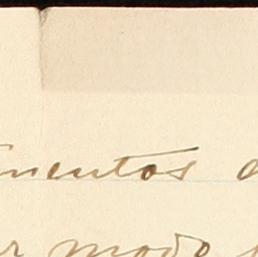 mentos
r modo